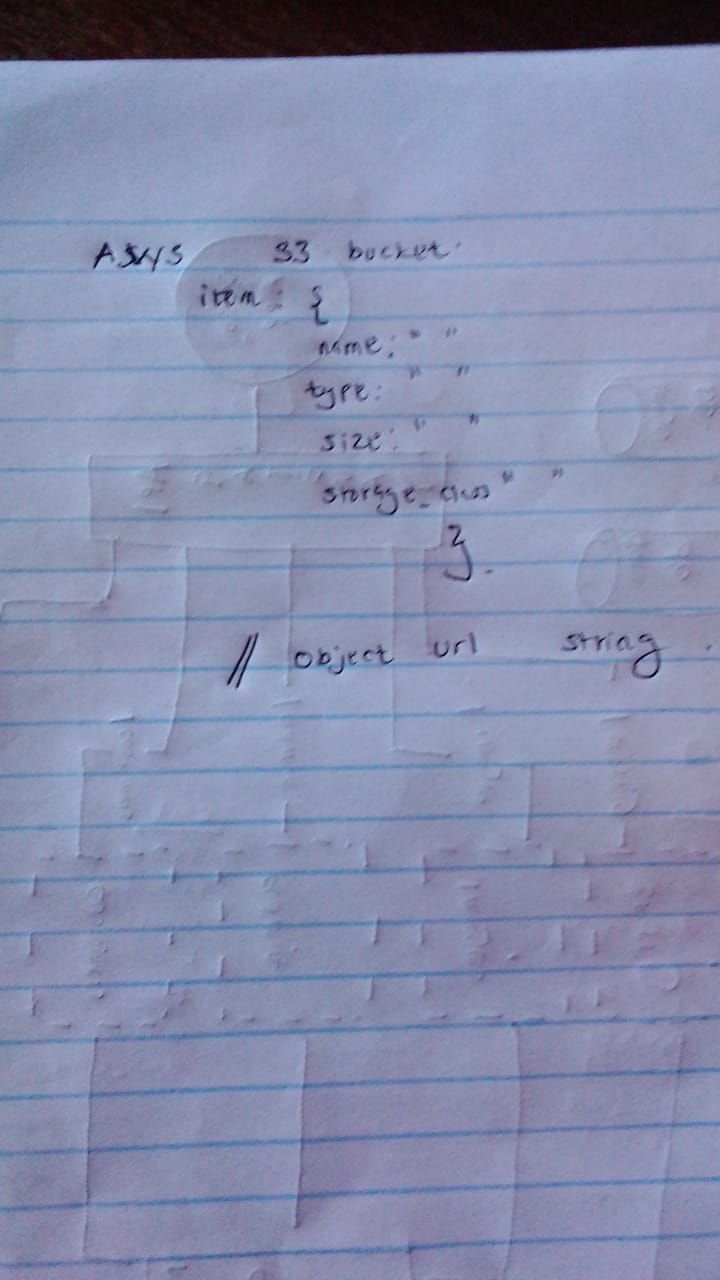 AWS S3 bucket.
item: {
name: " "
type: " "
size: " "
storage_class " "
}.
// object url string.